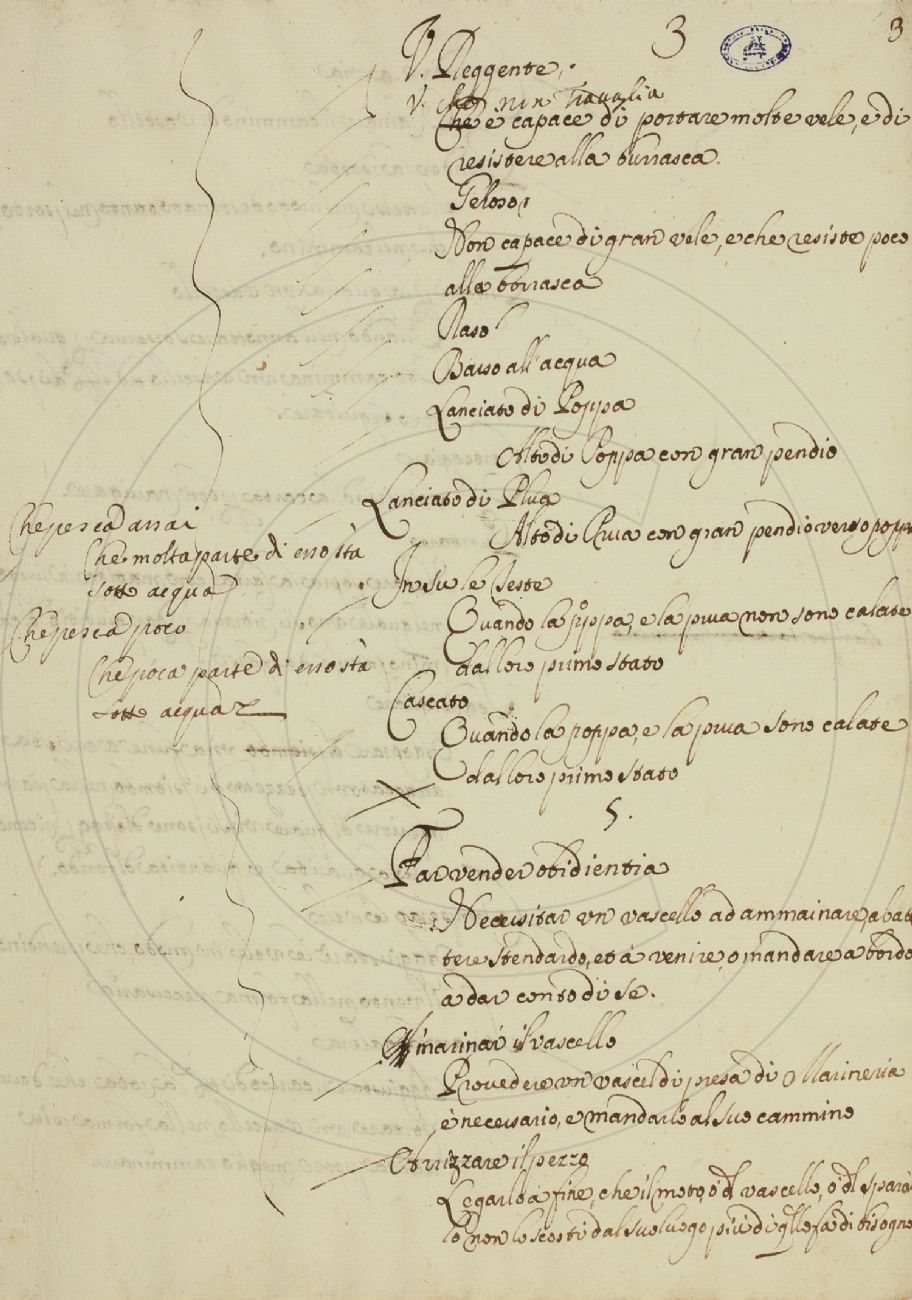 3 3
V. Reggente,
V. che non Travalia
Che è capace di portare molte vele, e di
resistere alla burrasca.
Geloso,
Non capace di gran vele, e che resiste poco
alla borrasca
Raso
Basso all'acqua
Lanciato di Poppa
Alto di Poppa con gran pendio
Lanciato di Prua
Alto di Prua con gran pendio verso poppa
Che pesca assai
Che molta parte di esso stà
sotto acqua
Che pesca poco
Che poca parte di esso stà
sotto acqua
In su le Teste
Quando la poppa, e la prua non sono calate
dal loro primo stato
Cascato
Quando la poppa, e la prua sono calate
dal loro primo stato
5.
Far render obidientia
Necessitar un vascello ad ammainare, abat
tere stendardo, et à venire, o mandare a bordo
à dar conto di se.
Amarinar il vascello
Provedere un vascel di presa di Marineria
è necessario, e mandarlo al suo cammino
Abrizzare il pezzo
Legarlo à fine, che il moto, ò dl vascello, ò dl sparar
lo non lo scosti dal suo luogo più di qllo fà di bisogno